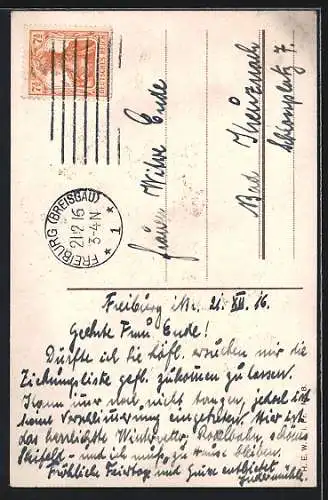 7½
7½
DEUTSCHES REICH
FREIBURG (BREISGAU)
21 12 16
3-4 N
* 1 *
Frau Witwe Ende
Bad Kreuznach
Schloßplatz 7.
Freiburg i/Br. 21. XII. 16.
Geehrte Frau Ende!
Dürfte ich Sie höfl. ersuchen mir die
Ziehungsliste gefl. zukommen zu lassen.
nur noch nicht sagen, jedoch ist
keine Verschlimmerung eingetreten. Hier ist
das herrlichste Winterwetter, Rodelbahn, schönes
Skifeld - und ich muss zu Hause bleiben.
Fröhliche Feiertage und Grüße entbietet